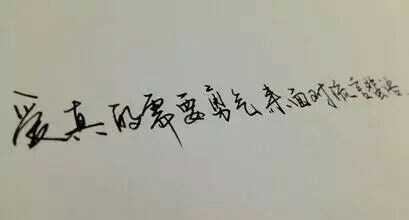 爱真的需要勇气来面对流言蜚语